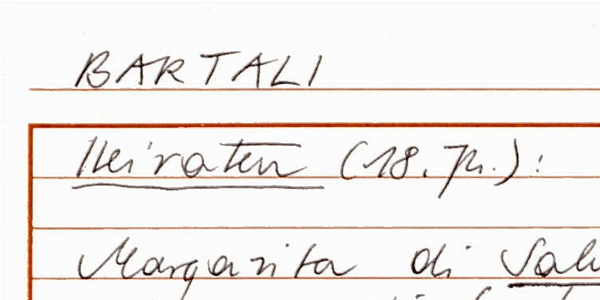 BARTALI
Heiraten (18. Jh.):
Margarita di